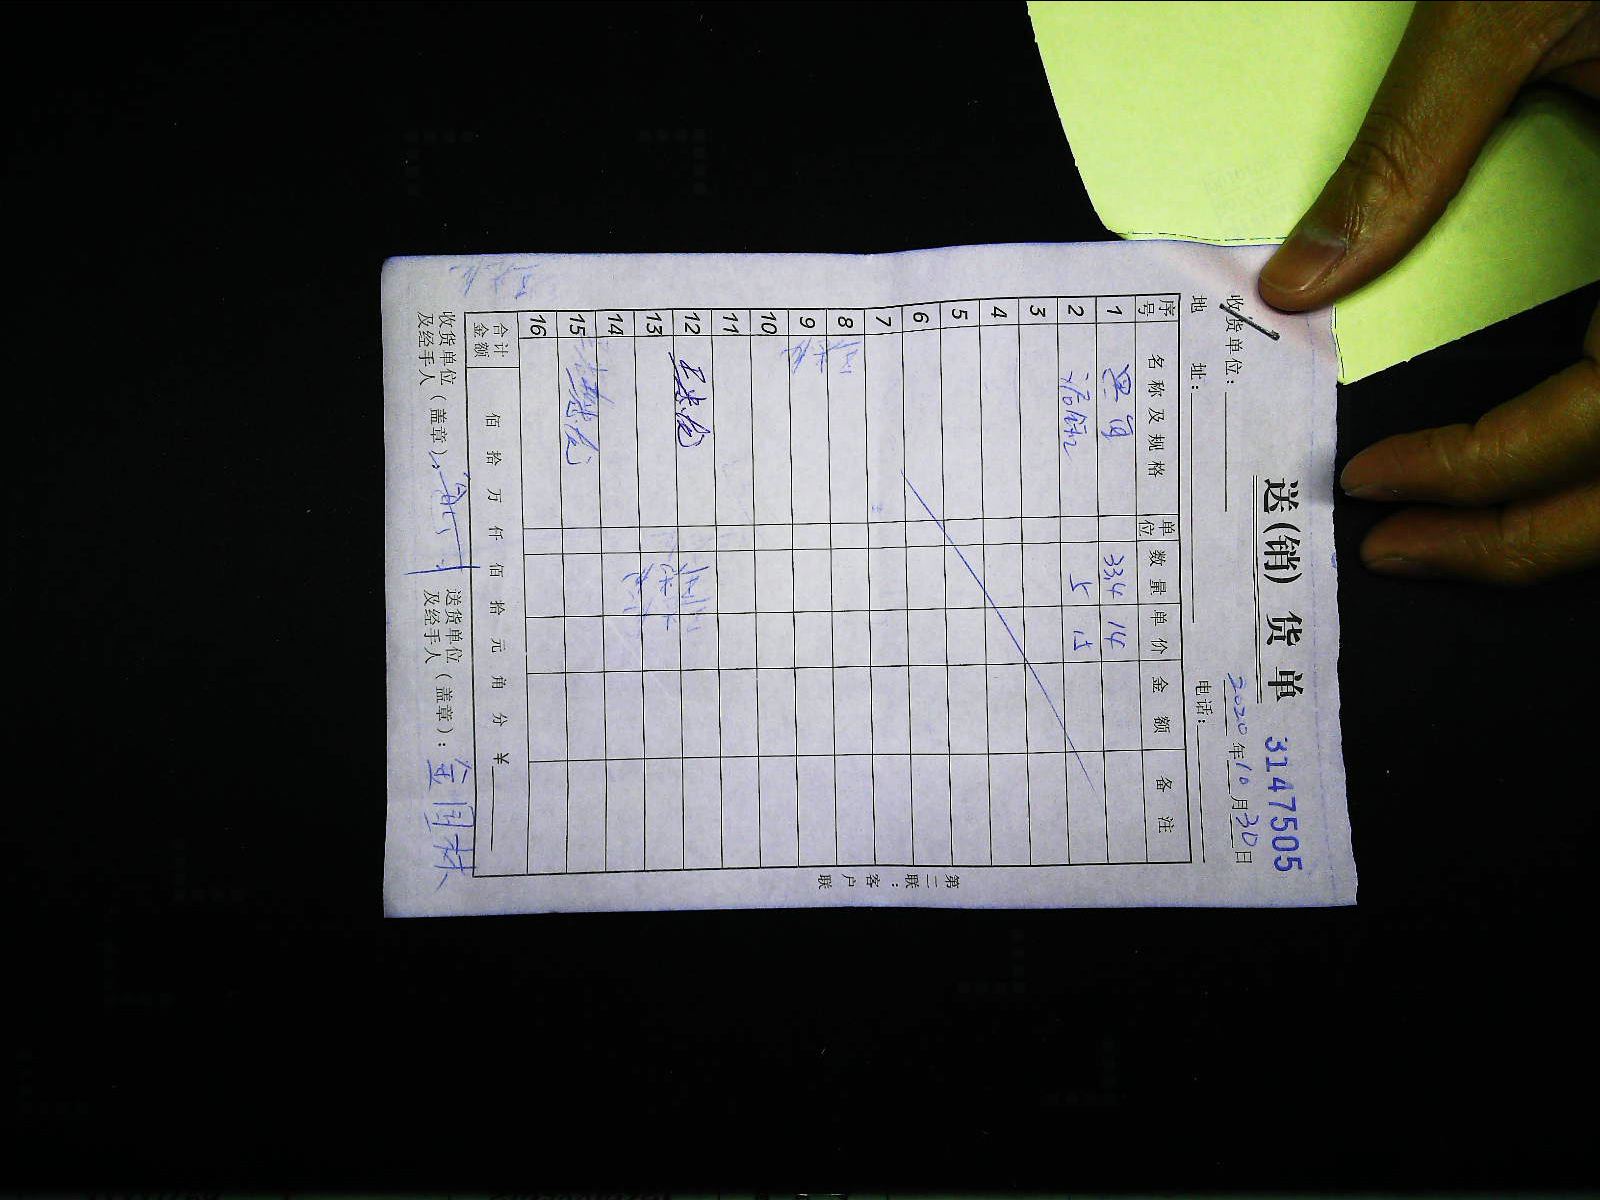 送(销) 货 单 3147505
收货单位： 2020年10月30日
地 址： 电话：
序号 名称及规格 单位 数量 单价 金额 备注
1 33.4 14
2 5 15
3
4
5
6
7
8
9
10
11
12
13
14
15
16
合计金额 佰 拾 万 仟 佰 拾 元 角 分 ¥
收货单位及经手人（盖章）： 送货单位及经手人（盖章）：金国林
第二联：客户联